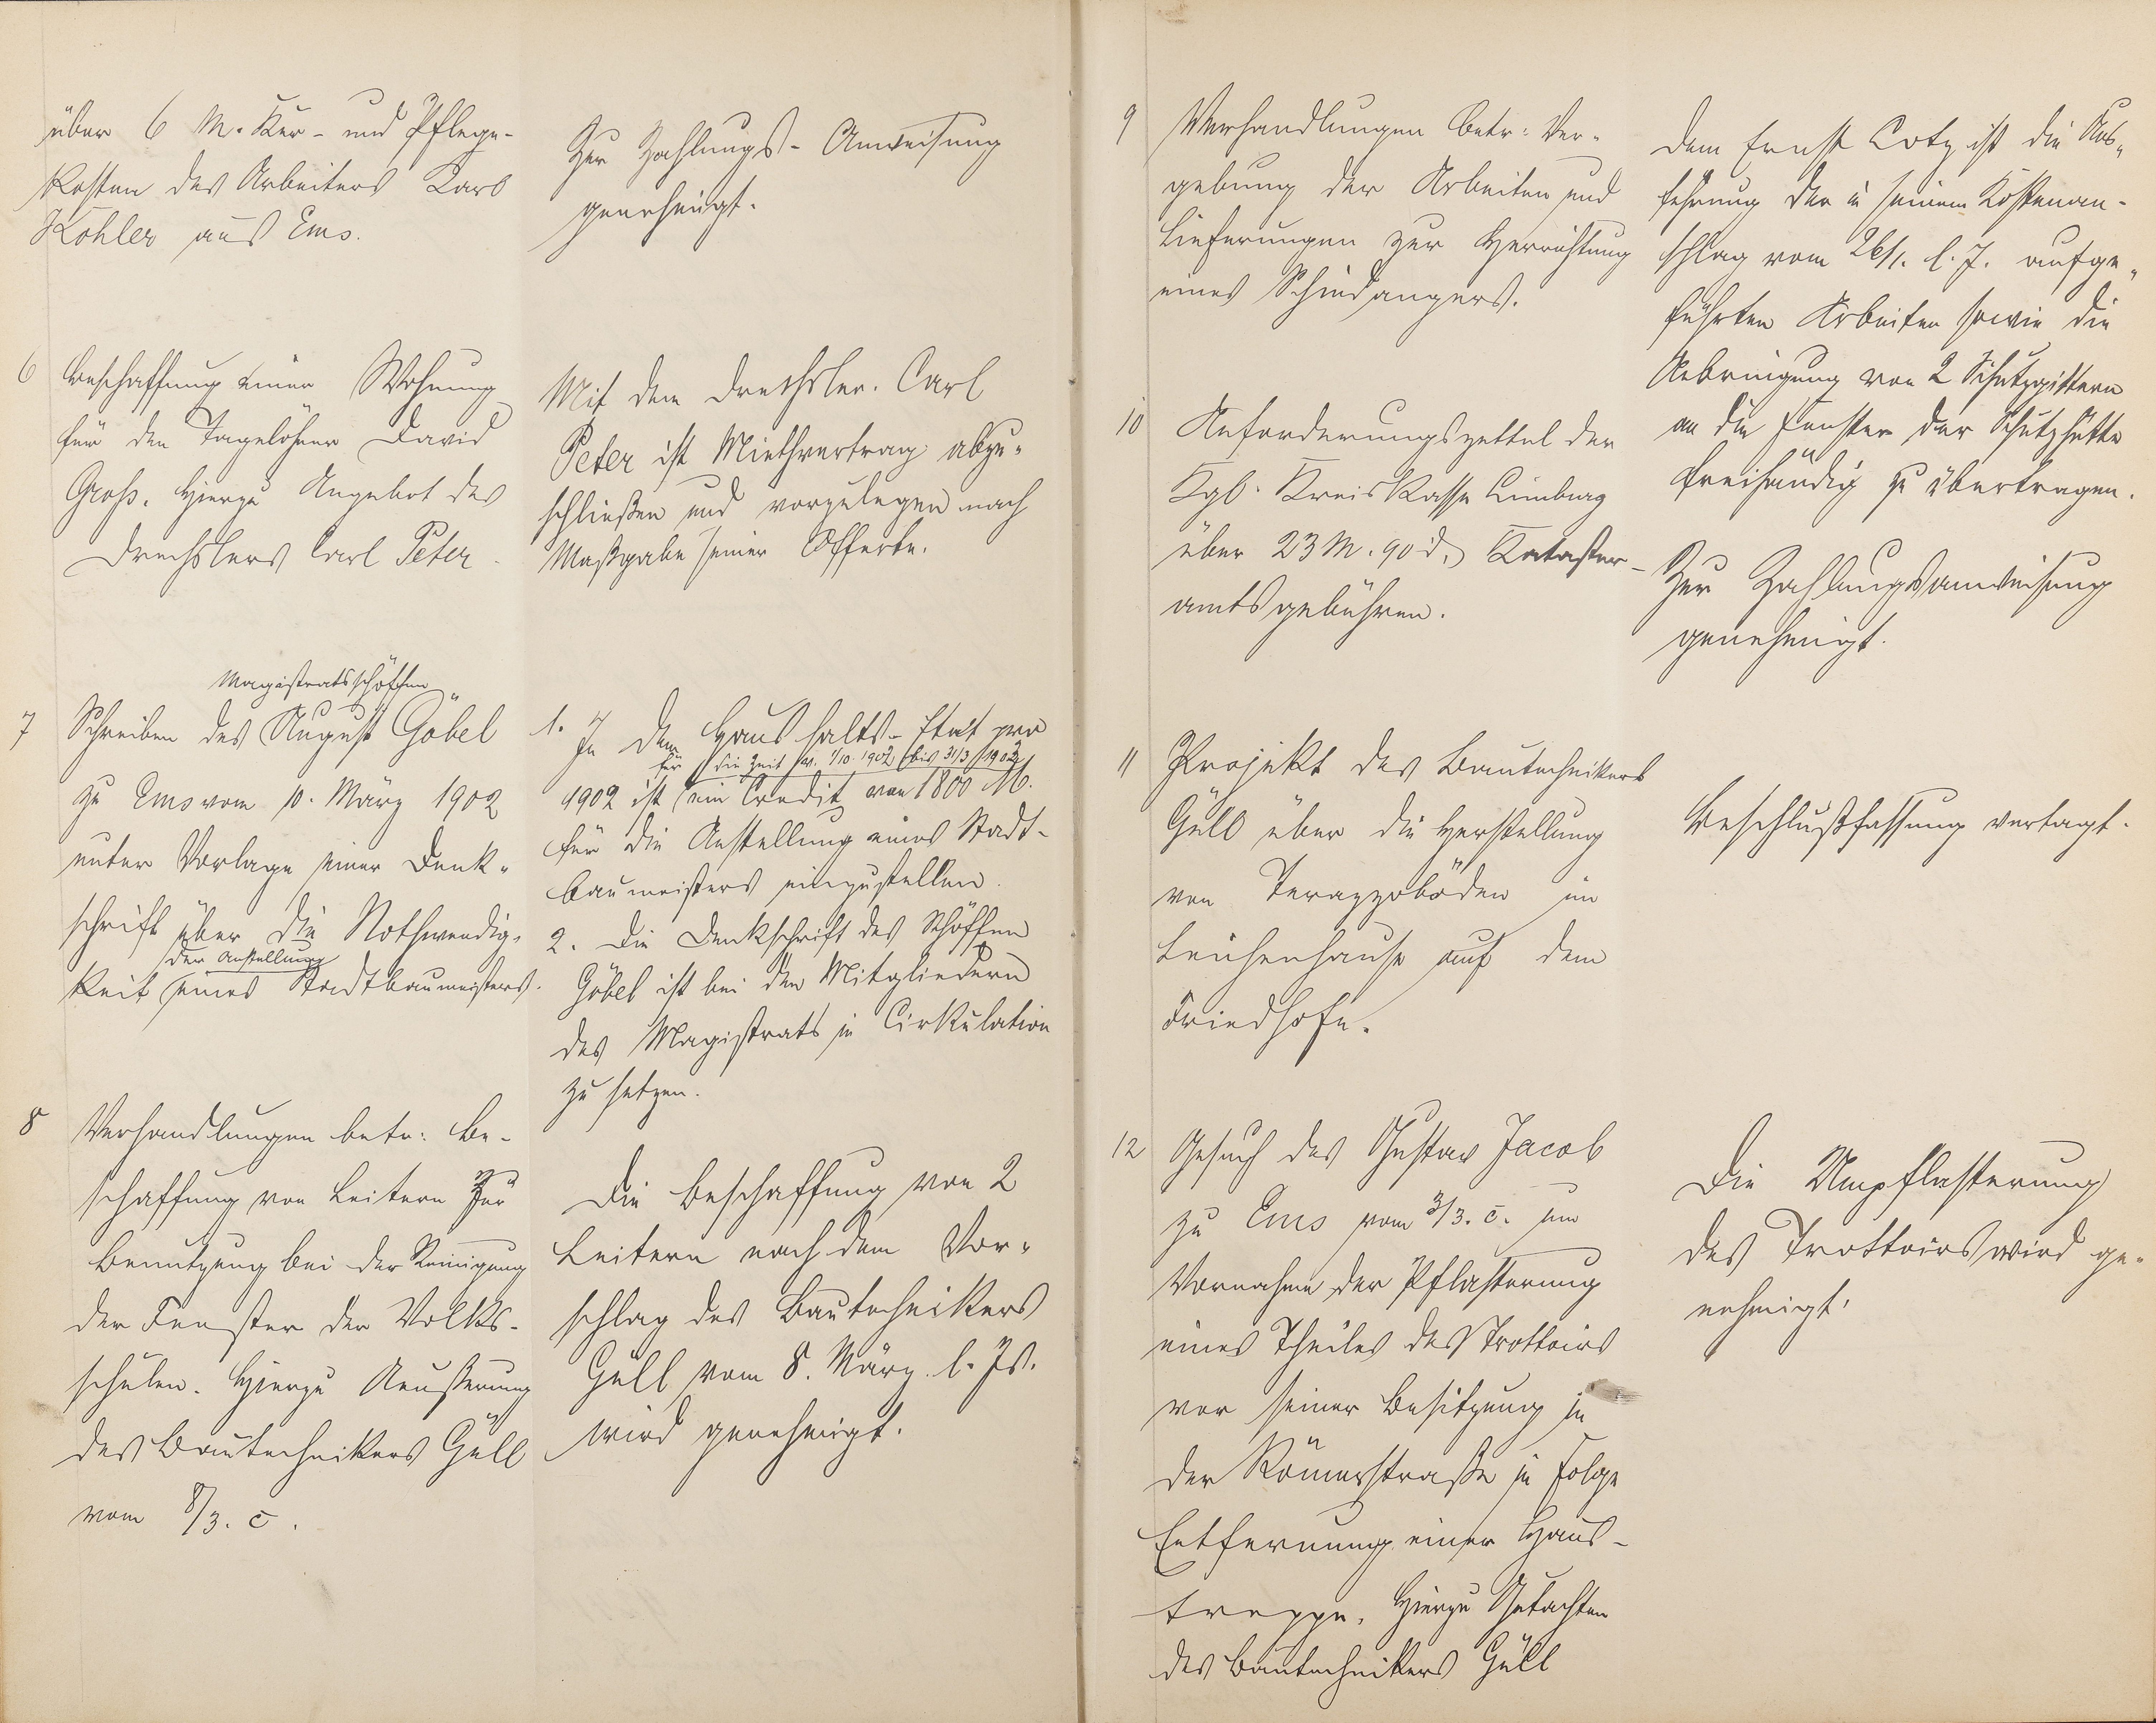 über 6 M. Kur- und Pflege-
kosten des Arbeiters Karl
Köhler aus Ems.
Zur Zahlungs-Anweisung
genehmigt.
6 Beschaffung einer Wohnung
für den Tagelöhner David
Groß. Hierzu Angebot des
Drechslers Carl Peter.
Mit dem Drechsler Carl
Peter ist Miethvertrag abzu-
schließen und vorzulegen nach
Maßgabe seiner Offerte.
Magistratsschöffen
7 Schreiben des August Göbel
zu Ems vom 10. März 1902
unter Vorlage einer Denk-
schrift über die Nothwendig-
der Anstellung
keit eines Stadtbaumeisters.
1. In dem Haushalts-Etat pro
für die Zeit v. 1/10. 1902 bis 31/3 1903
1902 ist ein Credit von 1800 M.
für die Anstellung eines Stadt-
baumeisters einzustellen.
2. Die Denkschrift des Schöffen
Göbel ist bei den Mitgliedern
des Magistrats in Cirkulation
zu setzen.
8 Verhandlungen betr: Be-
schaffung von Leitern zur
Benutzung bei der Reinigung
der Fenster der Volks-
schulen. Hierzu Aeußerung
des Bautechnikers Güll
vom 8/3. c.
Die Beschaffung von 2
Leitern nach dem Vor-
schlag des Bautechnikers
Güll vom 8. März l. Js.
wird genehmigt.
9 Verhandlungen betr: Ver-
gebung der Arbeiten und
Lieferungen zur Herrichtung
eines Schindangers.
Dem Ernst Lotz ist die Aus-
führung der in seinem Kostenan-
schlag vom 26/1. l. J. aufge-
führten Arbeiten sowie die
Anbringung von 2 Schutzgittern
an die Fenster der Schutzhütte
freihändig zu übertragen.
10 Anforderungszettel der
Kgl. Kreiskasse Limburg
über 23 M. 90 d. Kataster-
amtsgebühren.
Zur Zahlungsanweisung
genehmigt.
11 Projekt des Bautechnikers
Güll über die Herstellung
von Terazzoböden im
Leichenhause auf dem
Friedhofe.
Beschlußfassung vertagt.
12 Gesuch des Gustav Jacob
zu Ems vom 3/3. c. um
Vornahme der Pflasterung
eines Theiles des Trottoirs
vor seiner Besitzung in
der Römerstraße in Folge
Entfernung einer Haus-
treppe. Hierzu Gutachten
des Bautechnikers Güll
Die Umpflasterung
des Trottoirs wird ge-
nehmigt.